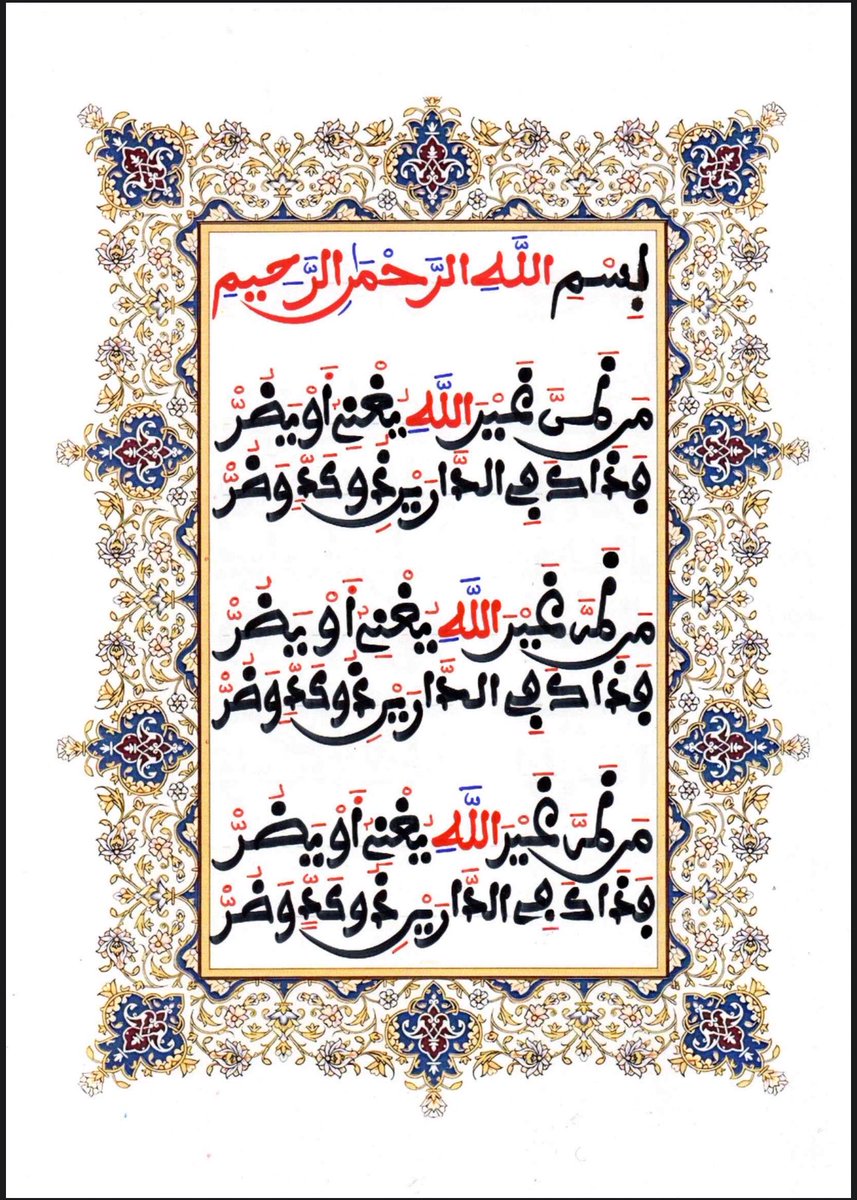 بِسْمِ اللَّهِ الرَّحْمَنِ الرَّحِيمِ
مَن ظَنَّ غَيْرَ اللَّهِ يُغْنِي أَوْ يَضُرّْ
فَذَاكَ فِي الدَّارَيْنِ ذُو كَدٍّ وَضُرّْ
مَن ظَنَّ غَيْرَ اللَّهِ يُغْنِي أَوْ يَضُرّْ
فَذَاكَ فِي الدَّارَيْنِ ذُو كَدٍّ وَضُرّْ
مَن ظَنَّ غَيْرَ اللَّهِ يُغْنِي أَوْ يَضُرّْ
فَذَاكَ فِي الدَّارَيْنِ ذُو كَدٍّ وَضُرّْ